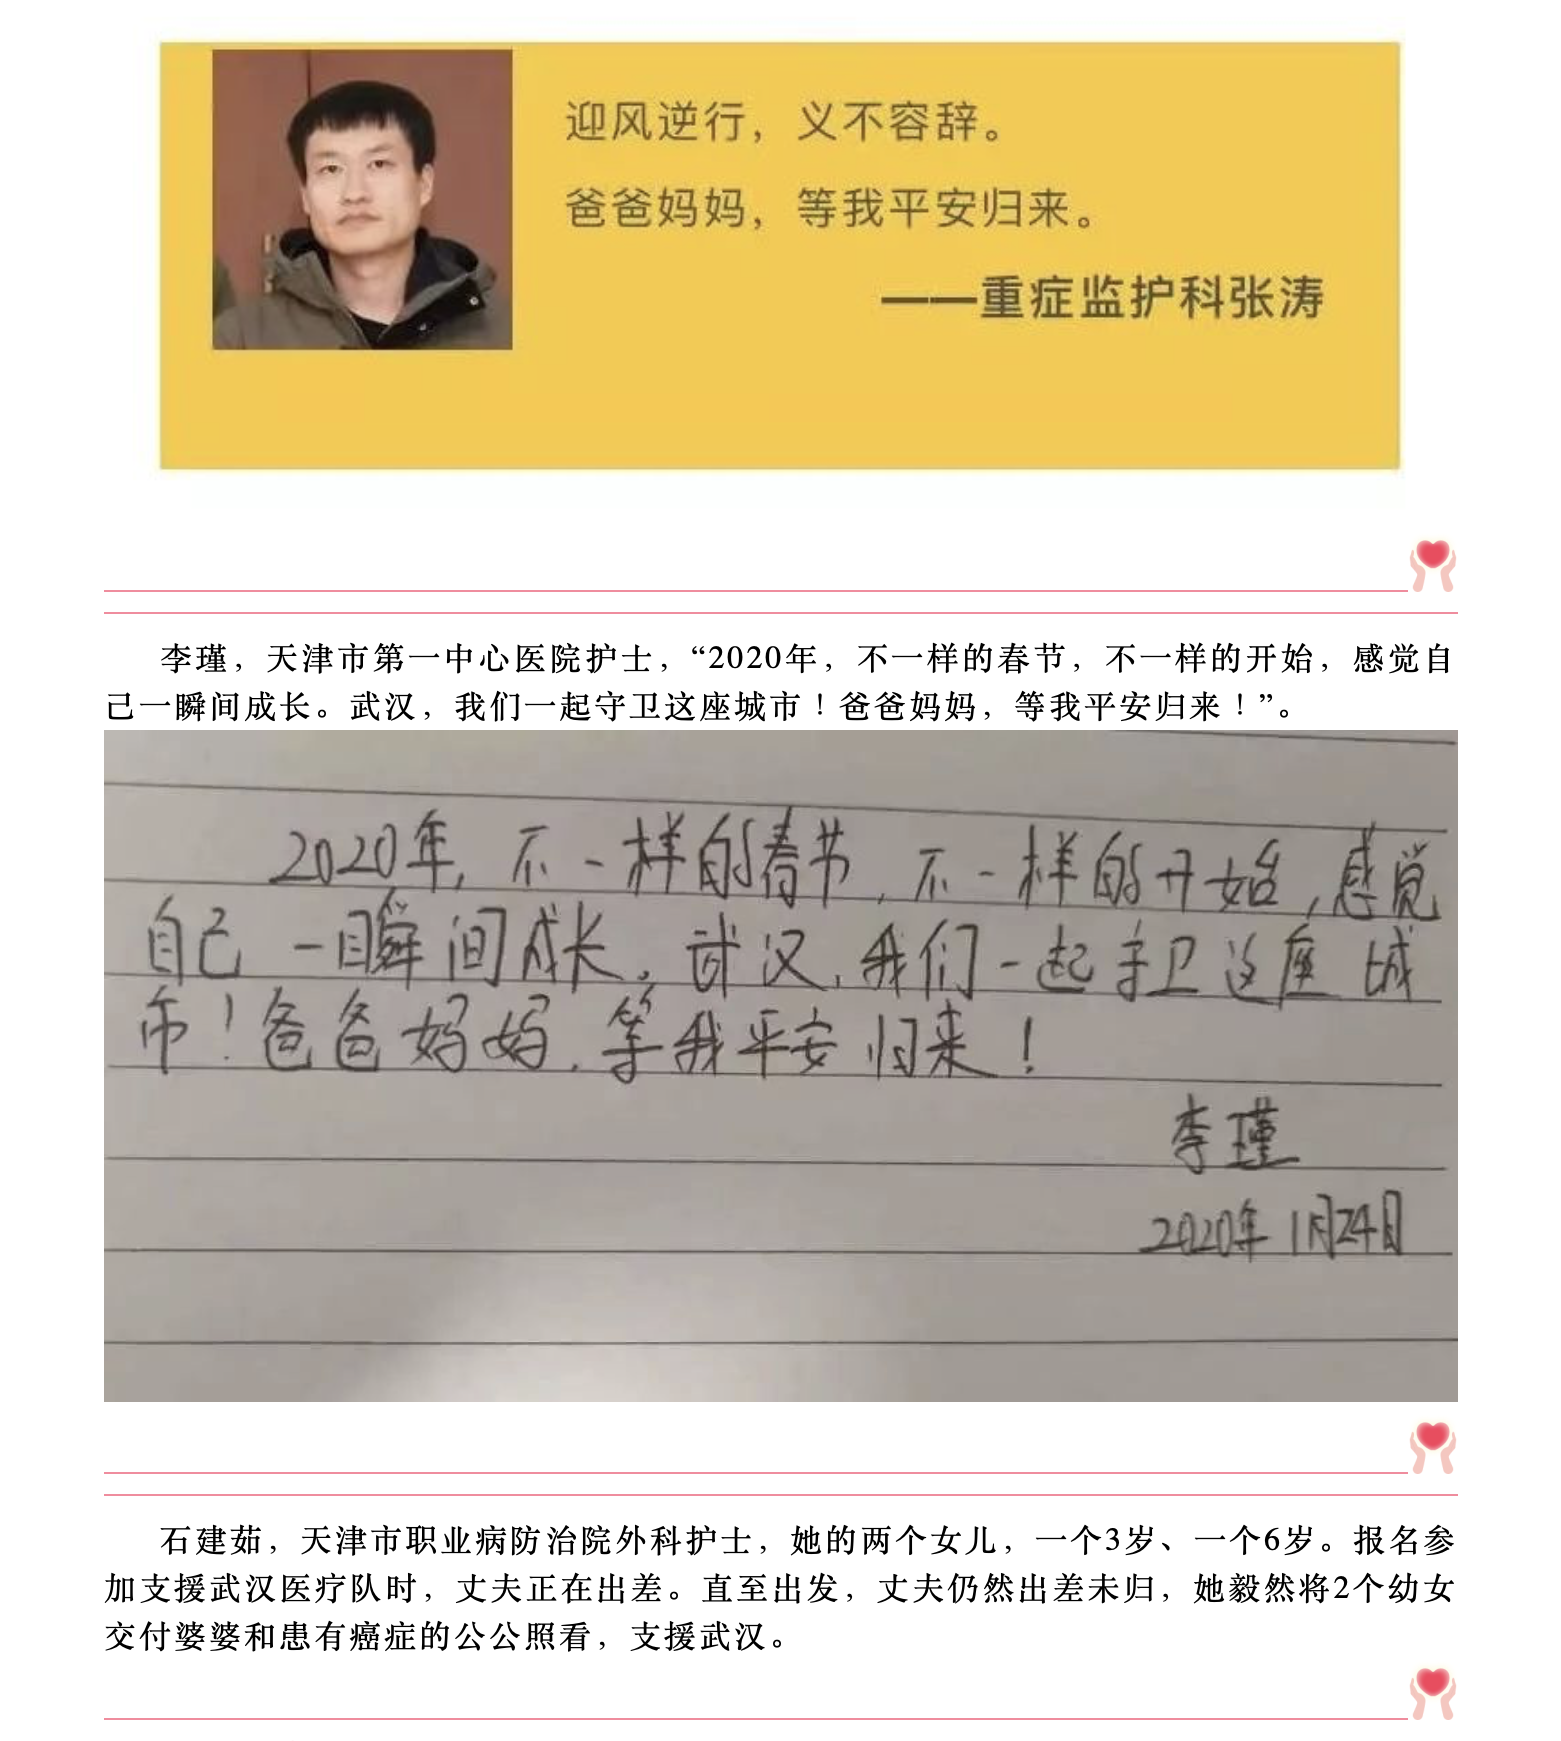 迎风逆行，义不容辞。
爸爸妈妈，等我平安归来。
——重症监护科张涛
李瑾，天津市第一中心医院护士，“2020年，不一样的春节，不一样的开始，感觉自
己一瞬间成长。武汉，我们一起守卫这座城市！爸爸妈妈，等我平安归来！”。
2020年，不一样的春节，不一样的开始，感觉
自己一瞬间成长。武汉，我们一起守卫这座城
市！爸爸妈妈，等我平安归来！
李瑾
2020年1月24日
石建茹，天津市职业病防治院外科护士，她的两个女儿，一个3岁、一个6岁。报名参
加支援武汉医疗队时，丈夫正在出差。直至出发，丈夫仍然出差未归，她毅然将2个幼女
交付婆婆和患有癌症的公公照看，支援武汉。